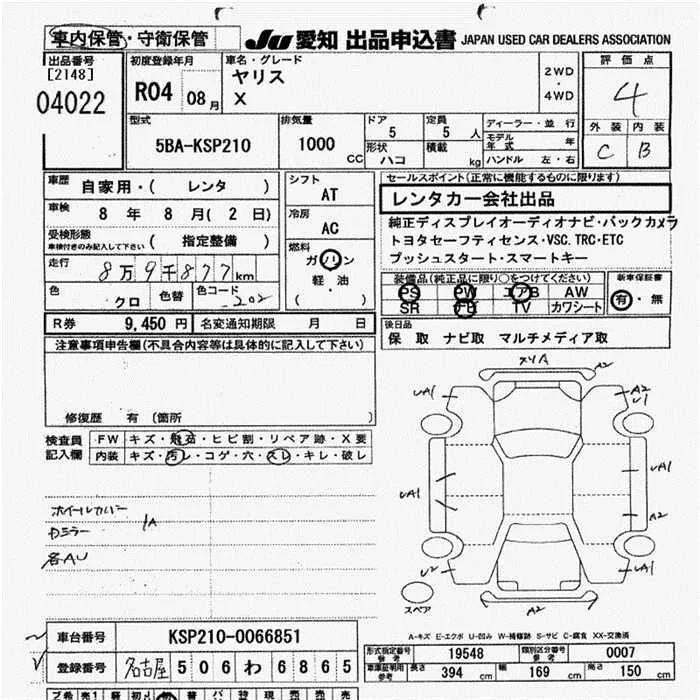 車内保管・守衛保管
JU 愛知 出品申込書 JAPAN USED CAR DEALERS ASSOCIATION
出品番号
[2148]
04022
初度登録年月
R04 08月
車名・グレード
ヤリス
X
2WD
・
4WD
評価点
4
外装 内装
C B
型式
5BA-KSP210
排気量
1000
CC
ドア
5
定員
5 人
形状
ハコ
積載
kg
ディーラー・並行
モデル年式 年
ハンドル 左・右
車歴
自家用・( レンタ )
車検
8 年 8 月( 2 日)
受検形態
車検付きのみ記入して下さい
( 指定整備 )
走行
8万9千877km
色
クロ
色替
色コード
202
シフト
AT
冷房
AC
燃料
ガソリン
・
軽・油
( )
セールスポイント(正常に機能するものに限ります)
レンタカー会社出品
純正ディスプレイオーディオナビ・バックカメラ
トヨタセーフティセンス・VSC.TRC・ETC
プッシュスタート・スマートキー
装備品(純正品に限り○をつけてください)
PS PW エアB AW
SR TV カワシート
新車保証書
有・無
R券 9,450円
名変通知期限 月 日
後日品
保 取 ナビ取 マルチメディア取
注意事項申告欄(不具合内容等は具体的に記入して下さい)
修復歴 有(箇所 )
検査員
記入欄
FW キズ・飛石・ヒビ割・リペア跡・X要
内装 キズ・汚レ・コゲ・穴・スレ・キレ・破レ
ホイールカバー
カミラー
1A
各AU
A2
UA1
A2
U1
UA1
UA1
A2
U2
UA1
A2
スペア
A-キズ E-エクボ U-凹み W-補修跡 S-サビ C-腐食 XX-交換済
車台番号 KSP210-0066851
登録番号 名古屋 506わ6865
形式指定番号
参考
19548
類別区分番号
参考
0007
車庫証明用
参考
長さ 394 cm 幅 169 cm 高さ 150 cm